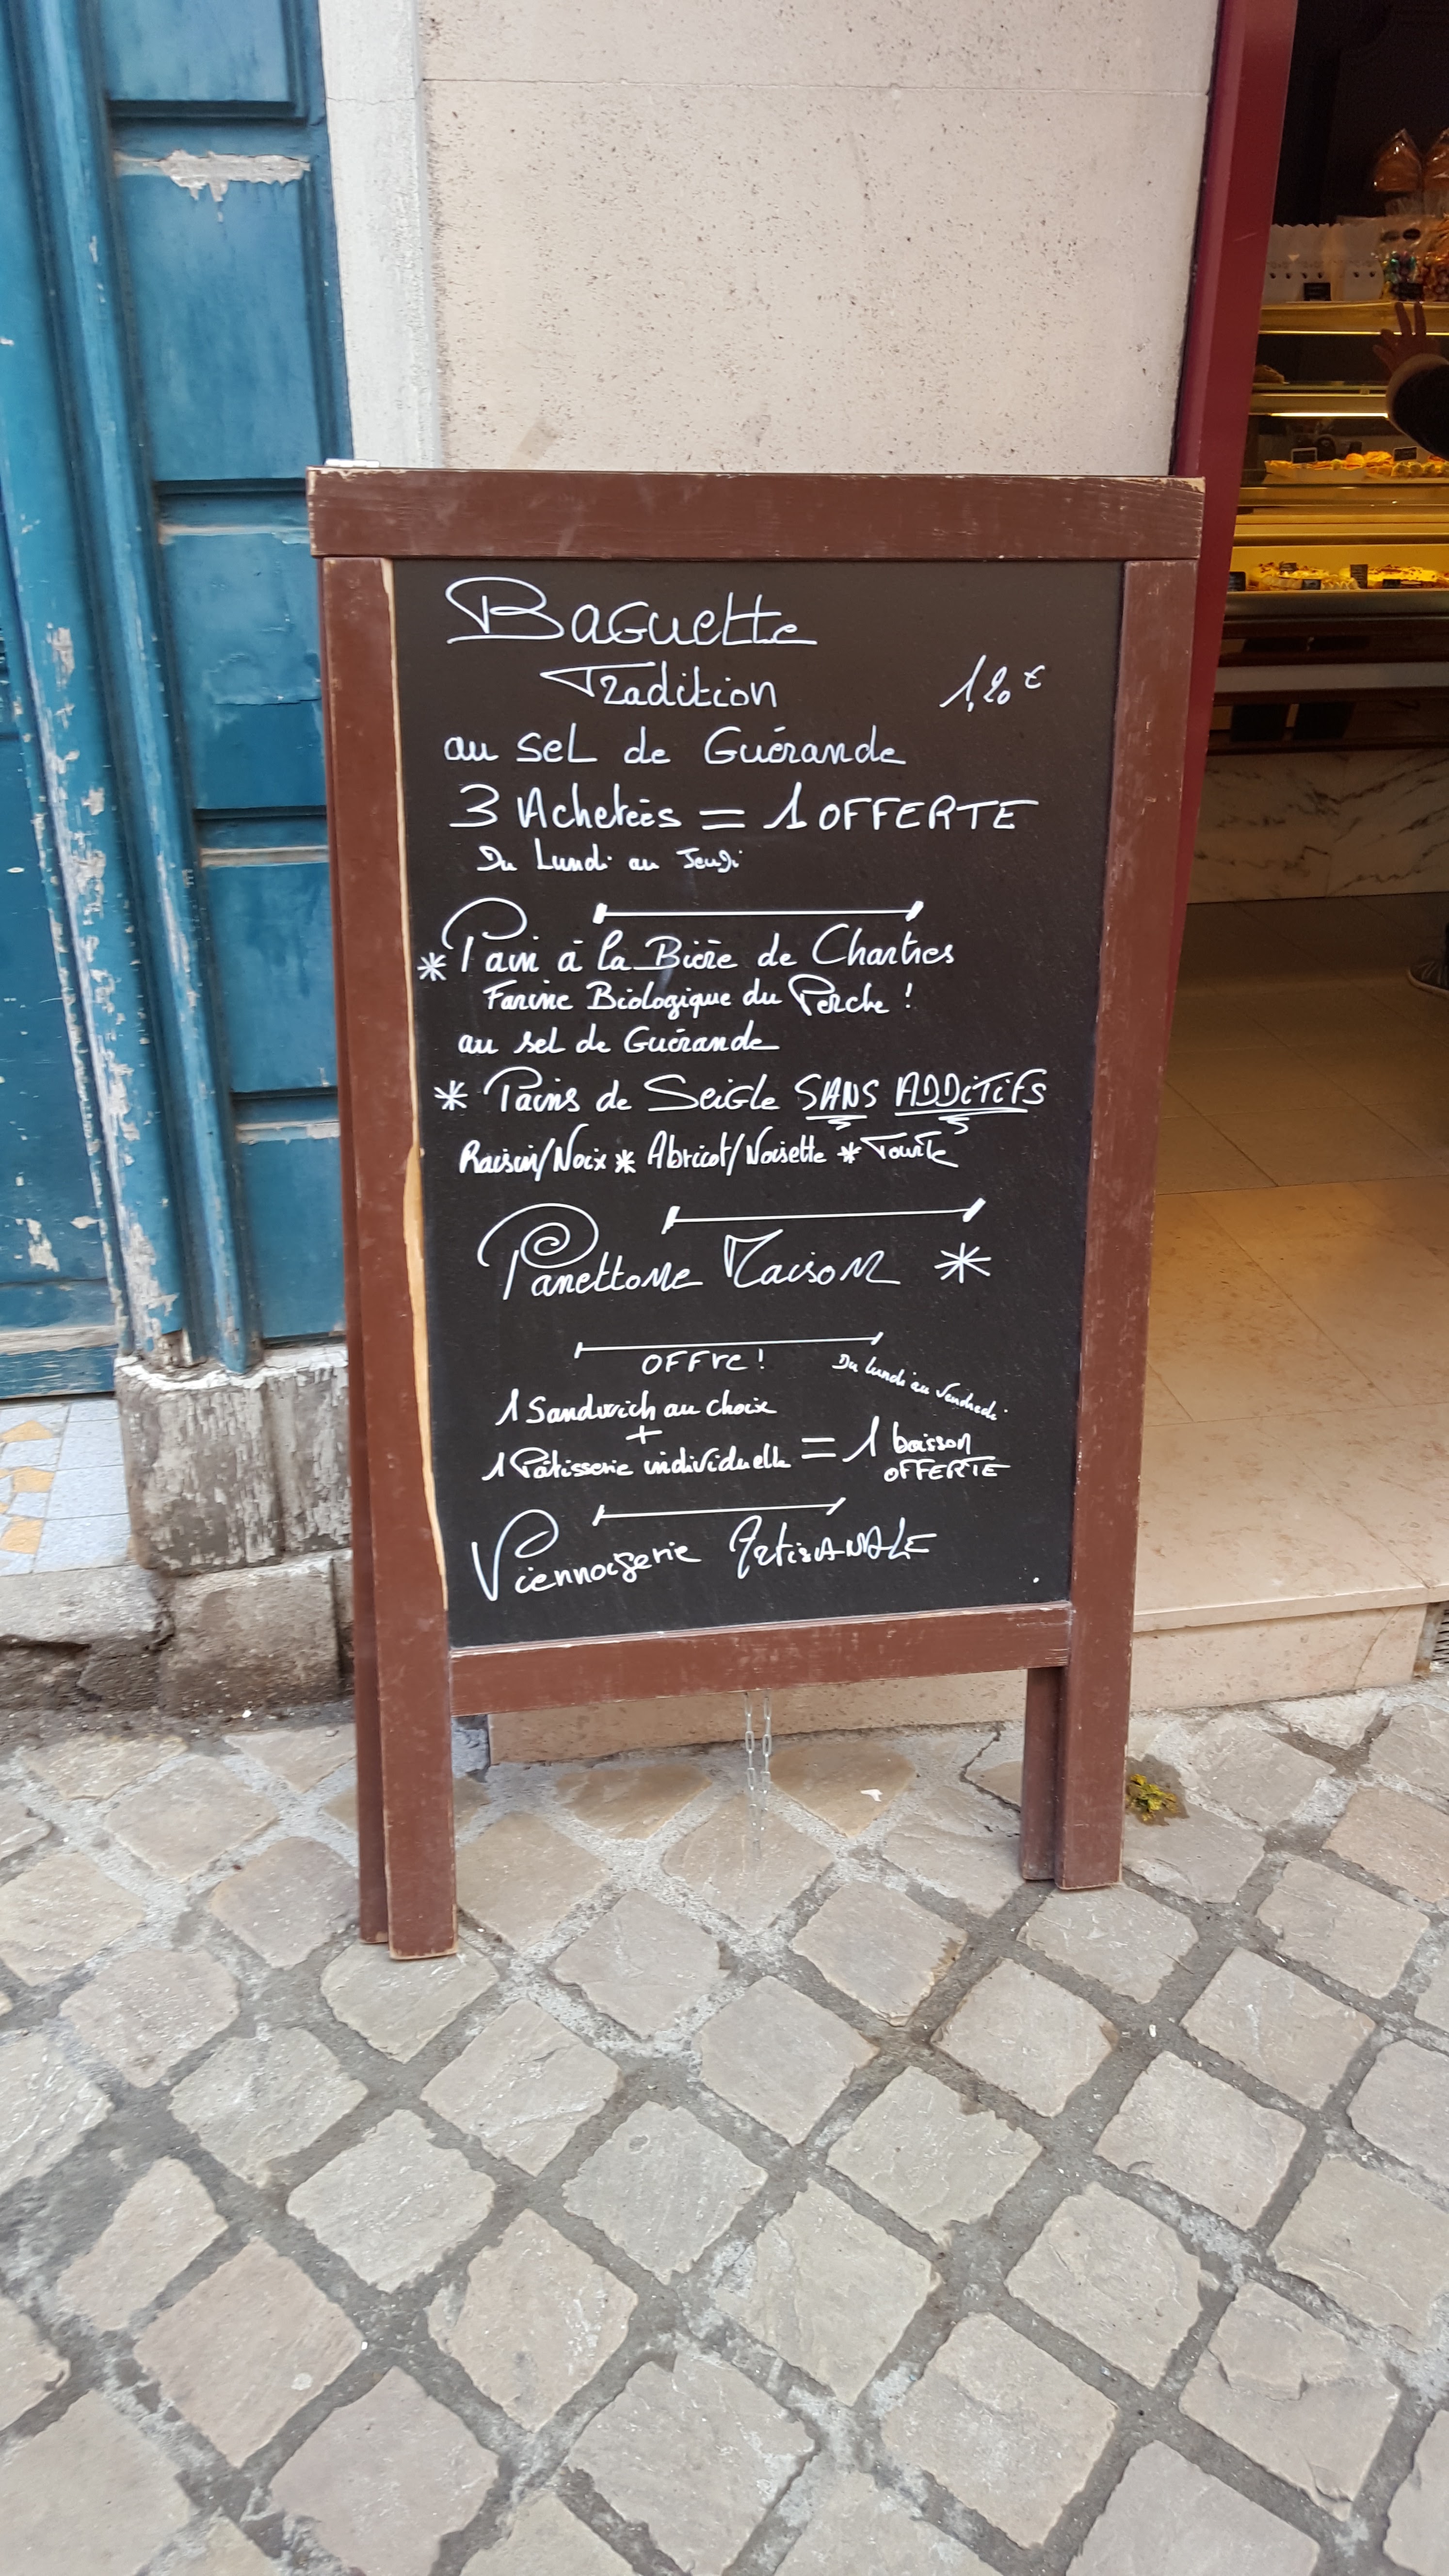 Baguette
Tradition 1,20 €
au sel de Guérande
3 Achetées = 1 OFFERTE
Du Lundi au Jeudi
* Pain à la Bière de Chartres
Farine Biologique du Perche !
au sel de Guérande
* Pains de Seigle SANS ADDITIFS
Raisin/Noix * Abricot/Noisette * Tourte
Panettone Maison *
OFFre !
Du lundi au Vendredi
1 Sandwich au choix
+
1 Pâtisserie individuelle = 1 boisson
OFFERTE
Viennoiserie ArtisANALE